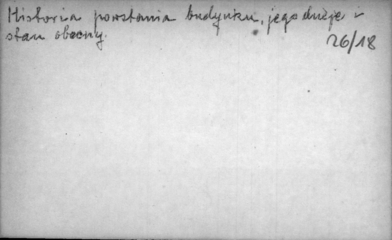 Historia powstania budynku, jego dzieje i
stan obecny.
26/18